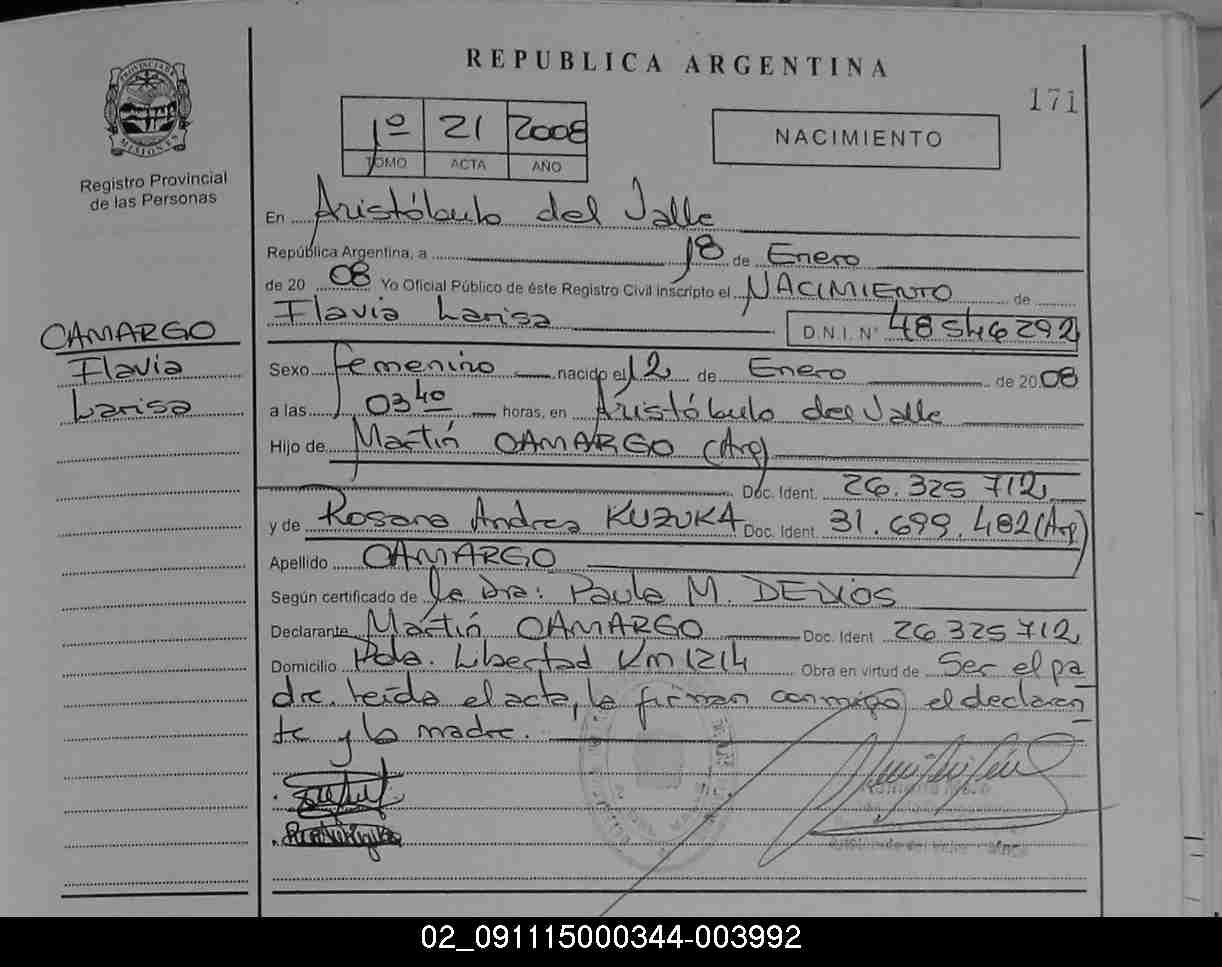 REPUBLICA ARGENTINA
171
PROVINCIA DE MISIONES
Registro Provincial
de las Personas
1º 21 2008
TOMO ACTA AÑO
NACIMIENTO
En Aristóbulo del Valle
República Argentina, a 18 de Enero
de 2008 Yo Oficial Público de éste Registro Civil inscripto el NACIMIENTO de
Flavia Larisa D.N.I. Nº 48546292
CAMARGO
Flavia
Larisa
Sexo femenino nacido el 12 de Enero de 2008
a las 03 40 horas, en Aristóbulo del Valle
Hijo de Martín CAMARGO (Arg)
Doc. Ident. 26.325 712
y de Rosana Andrea KUZUKA Doc. Ident. 31.699.482 (Arg)
Apellido CAMARGO
Según certificado de la Dra: Paula M.
Declarante Martín CAMARGO Doc. Ident 26 325 712
Domicilio Pda. Libertad Km 1214 Obra en virtud de Ser el pa
dre. leída el acta, la firman conmigo el declaran
te y la madre.
02_091115000344-003992